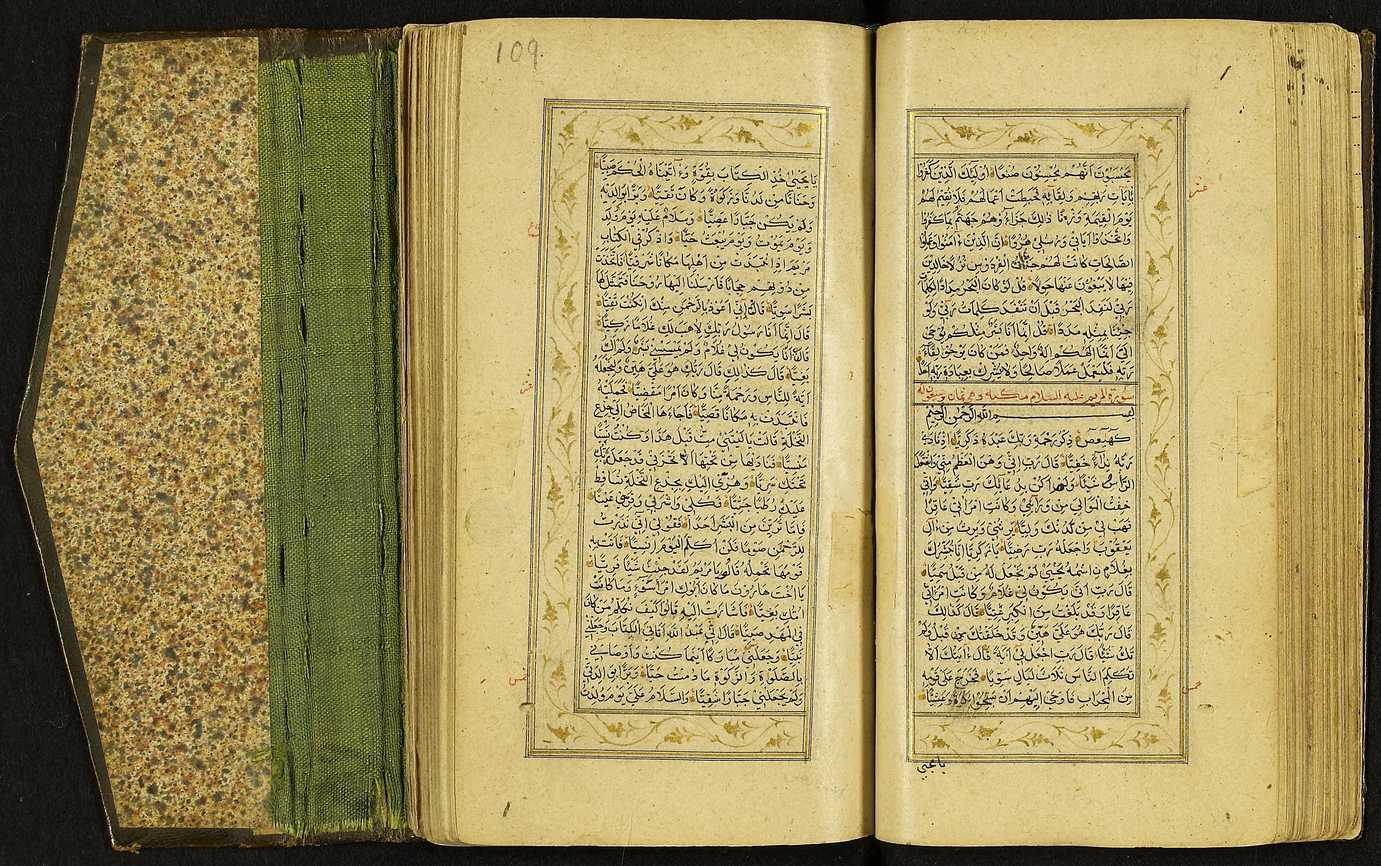 يحسبون أنهم يحسنون صنعا أولئك الذين كفروا
بآيات ربهم ولقائه فحبطت أعمالهم فلا نقيم لهم
يوم القيمة وزنا ذلك جزاؤهم جهنم بما كفروا
واتخذوا آياتي ورسلي هزوا إن الذين ءامنوا وعملوا
الصالحات كانت لهم جنات الفردوس نزلا خالدين
فيها لا يبغون عنها حولا قل لو كان البحر مدادا لكلمات
ربي لنفد البحر قبل أن تنفد كلمات ربي ولو
جئنا بمثله مددا قل إنما أنا بشر مثلكم يوحى
إلي أنما إلهكم إله واحد فمن كان يرجو لقاء
ربه فليعمل عملا صالحا ولا يشرك بعبادة ربه أحدا
سورة المريم عليه السلام مكية وهي ثمان وتسعون آية
بسم الله الرحمن الرحيم
كهيعص ذكر رحمة ربك عبده زكريا إذ نادى
ربه نداء خفيا قال رب إني وهن العظم مني واشتعل
الرأس شيبا ولم أكن بدعائك رب شقيا وإني
خفت الموالي من ورائي وكانت امرأتي عاقرا
فهب لي من لدنك وليا يرثني ويرث من ءال
يعقوب واجعله رب رضيا يا زكريا إنا نبشرك
بغلام اسمه يحيى لم نجعل له من قبل سميا
قال رب أنى يكون لي غلام وكانت امرأتي
عاقرا وقد بلغت من الكبر عتيا قال كذلك
قال ربك هو علي هين وقد خلقتك من قبل ولم
تك شيئا قال رب اجعل لي آية قال ءايتك ألا
تكلم الناس ثلاث ليال سويا فخرج على قومه
من المحراب فأوحى إليهم أن سبحوا بكرة وعشيا
يا يحيى
عشر
خمس
109
يا يحيى خذ الكتاب بقوة وءاتيناه الحكم صبيا
وحنانا من لدنا وزكوة وكان تقيا وبرا بوالديه
ولم يكن جبارا عصيا وسلام عليه يوم ولد
ويوم يموت ويوم يبعث حيا واذكر في الكتاب
مريم إذ انتبذت من أهلها مكانا شرقيا فاتخذت
من دونهم حجابا فأرسلنا إليها روحنا فتمثل لها
بشرا سويا قالت إني أعوذ بالرحمن منك إن كنت تقيا
قال إنما أنا رسول ربك لأهب لك غلاما زكيا
قالت أنى يكون لي غلام ولم يمسسني بشر ولم أك
بغيا قال كذلك قال ربك هو علي هين ولنجعله
آية للناس ورحمة منا وكان أمرا مقضيا فحملته
فانتبذت به مكانا قصيا فأجاءها المخاض إلى جذع
النخلة قالت يا ليتني مت قبل هذا وكنت نسيا
منسيا فناداها من تحتها ألا تحزني قد جعل ربك
تحتك سريا وهزي إليك بجذع النخلة تساقط
عليك رطبا جنيا فكلي واشربي وقري عينا
فإما ترين من البشر أحدا فقولي إني نذرت
للرحمن صوما فلن أكلم اليوم إنسيا فأتت به
قومها تحمله قالوا يا مريم لقد جئت شيئا فريا
يا أخت هارون ما كان أبوك امرأ سوء وما كانت
أمك بغيا فأشارت إليه قالوا كيف نكلم من كان
في المهد صبيا قال إني عبد الله آتاني الكتاب وجعلني
نبيا وجعلني مباركا أينما كنت وأوصاني
بالصلوة والزكوة ما دمت حيا وبرا بوالدتي
ولم يجعلني جبارا شقيا والسلام علي يوم ولدت
عشر
خمس